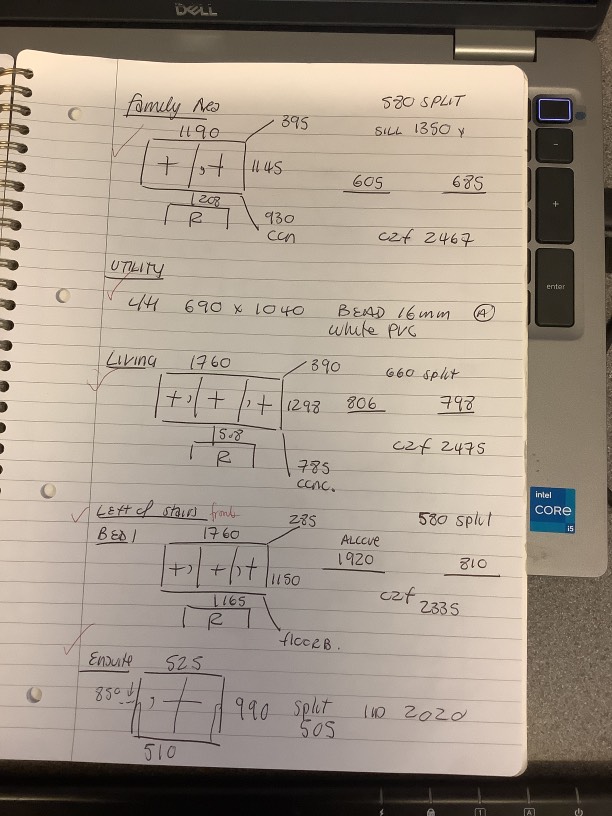 DELL
family Area
580 SPLIT
1190
395
SILL 1350 Y
+ , +
1145
605
685
1208
R
930
CCN
C2f 2467
UTILITY
690 x 1040
BEAD 16mm
A
White PVC
Living
1760
390
660 split
+, + , +
1298
806
798
1508
R
785
CCNC.
C2f 2475
Left of stairs
front
285
580 split
BED 1
1760
ALCCVE
+, + , +
1150
1920
810
1165
R
flOORB.
C2f 2335
Ensuite
525
850
, +
990
split
505
2020
510
enter
intel
CORE
i5